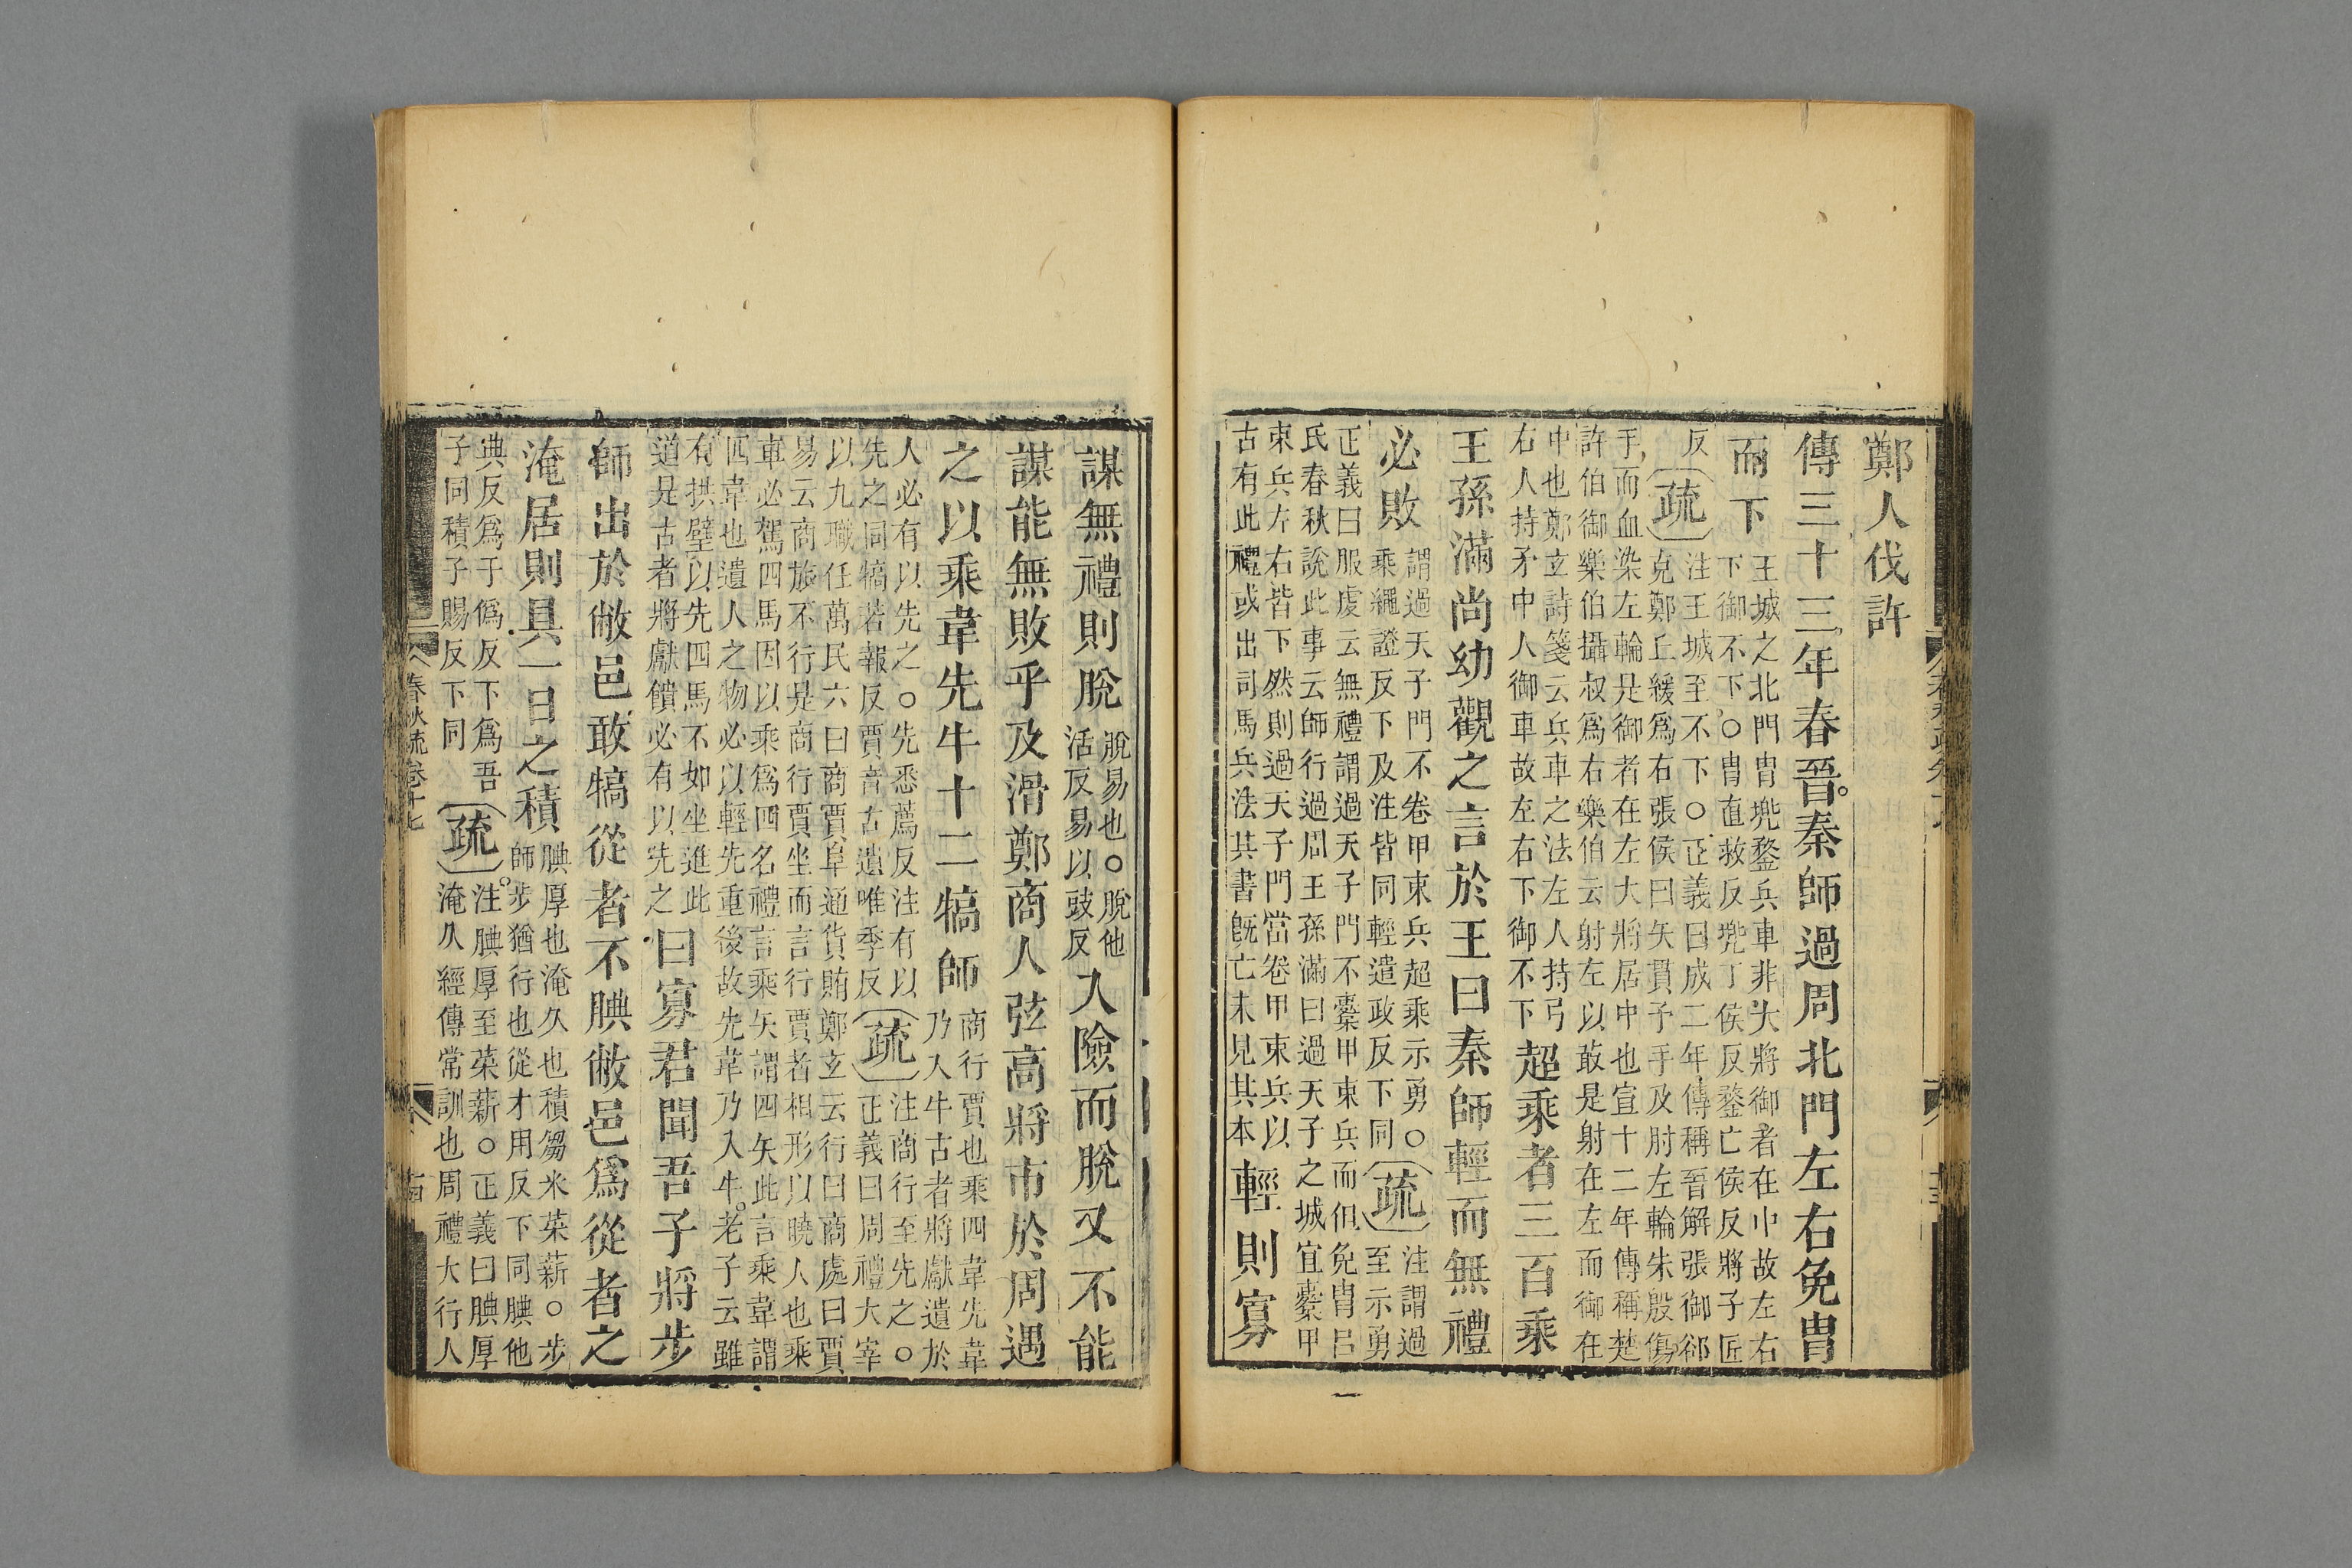 鄭人伐許
傳三十三年春晉秦師過周北門左右免冑
而下王城之北門冑兠鍪兵車非大將御者在中故左右
下御不下○冑直救反兠丁侯反鍪亡侯反將子匠
反疏注王城至不下○正義曰成二年傳稱晉解張御郤
克鄭丘緩爲右張侯曰矢貫予手及肘左輪朱殷傷
手而血染左輪是御者在左大將居中也宣十二年傳稱楚
許伯御樂伯攝叔爲右樂伯云射左以敢是射在左而御在
中也鄭玄詩箋云兵車之法左人持弓
右人持矛中人御車故左右下御不下超乘者三百乘
王孫滿尚幼觀之言於王曰秦師輕而無禮
必敗謂過天子門不卷甲束兵超乘示勇○
乘繩證反下及注皆同輕遣政反下同疏注謂過
至示勇
正義曰服虔云無禮謂過天子門不櫜甲束兵而但免冑呂
氏春秋說此事云師行過周王孫滿曰過天子之城宜櫜甲
束兵左右皆下然則過天子門當卷甲束兵以
古有此禮或出司馬兵法其書旣亡未見其本輕則寡
謀無禮則脫脫易也○脫他
活反易以豉反入險而脫又不能
謀能無敗乎及滑鄭商人弦高將市於周遇
之以乘韋先牛十二犒師商行賈也乘四韋先韋
乃入牛古者將獻遺於
人必有以先之○先悉薦反注有以
先之同犒若報反賈音古遺唯季反疏注商行至先之○
正義曰周禮大宰
以九職任萬民六曰商賈阜通貨賄鄭玄云行曰商處曰賈
易云商旅不行是商行賈坐而言行賈者相形以曉人也乘
車必駕四馬因以乘爲四名禮言乘矢謂四矢此言乘韋謂
四韋也遺人之物必以輕先重後故先韋乃入牛老子云雖
有拱璧以先四馬不如坐進此
道是古者將獻饋必有以先之曰寡君聞吾子將步
師出於敝邑敢犒從者不腆敝邑爲從者之
淹居則具一日之積腆厚也淹久也積芻米菜薪○步
師步猶行也從才用反下同腆他
典反爲于僞反下爲吾
子同積子賜反下同疏注腆厚至菜薪○正義曰腆厚
淹久經傳常訓也周禮大行人
春秋疏卷十七